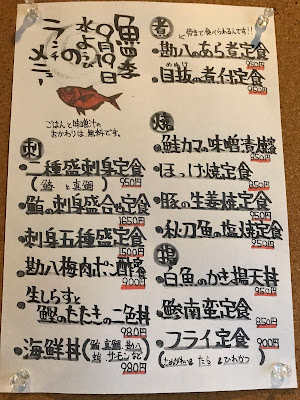 魚季
9月19日
水よう日
の
ランチ
メニュー
ごはんと味噌汁の
おかわりは無料です。
刺
・二種盛刺身定食
(鮪と真鯛) 950円
・鮪の刺身盛合せ定食
1650円
・刺身五種盛定食
1500円
・勘八梅肉ポン酢丼
900円
・生しらすと
鰹のたたきの二色丼
980円
・海鮮丼(鮪 真鯛 勘八
サーモン など)
980円
煮
骨まで食べられるんです!!
・勘八あら煮定食
950円
・目抜の煮付定食
950円
焼
・鮭カマの味噌漬焼
850円
・ほっけ焼定食
850円
・豚の生姜焼定食
850円
・秋刀魚の塩焼定食
950円
揚
・白魚のかき揚天丼
850円
・鯵南蛮定食
850円
・フライ定食 900円